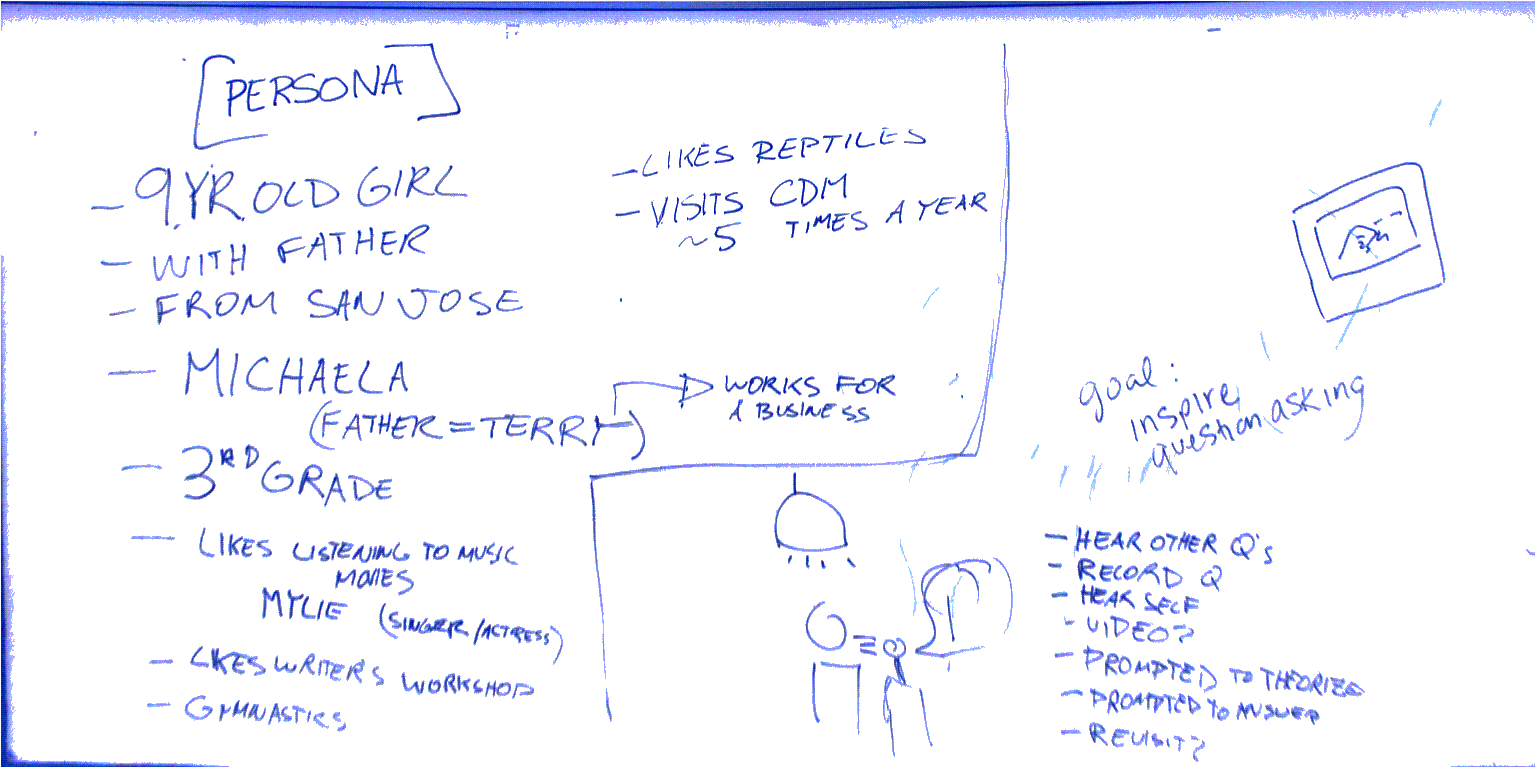 [PERSONA]
- 9 YR. OLD GIRL
- WITH FATHER
- FROM SAN JOSE
- MICHAELA
(FATHER = TERRY)
WORKS FOR
A BUSINESS
- 3RD GRADE
- LIKES LISTENING TO MUSIC
MOVIES
MYLIE (SINGER/ACTRESS)
- LIKES WRITER'S WORKSHOP
- GYMNASTICS
- LIKES REPTILES
- VISITS CDM
~5 TIMES A YEAR
goal:
inspire
question asking
- HEAR OTHER Q's
- RECORD Q
- HEAR SELF
- VIDEO?
- PROMPTED TO THEORIZE
- PROMPTED TO ANSWER
- REVISIT?